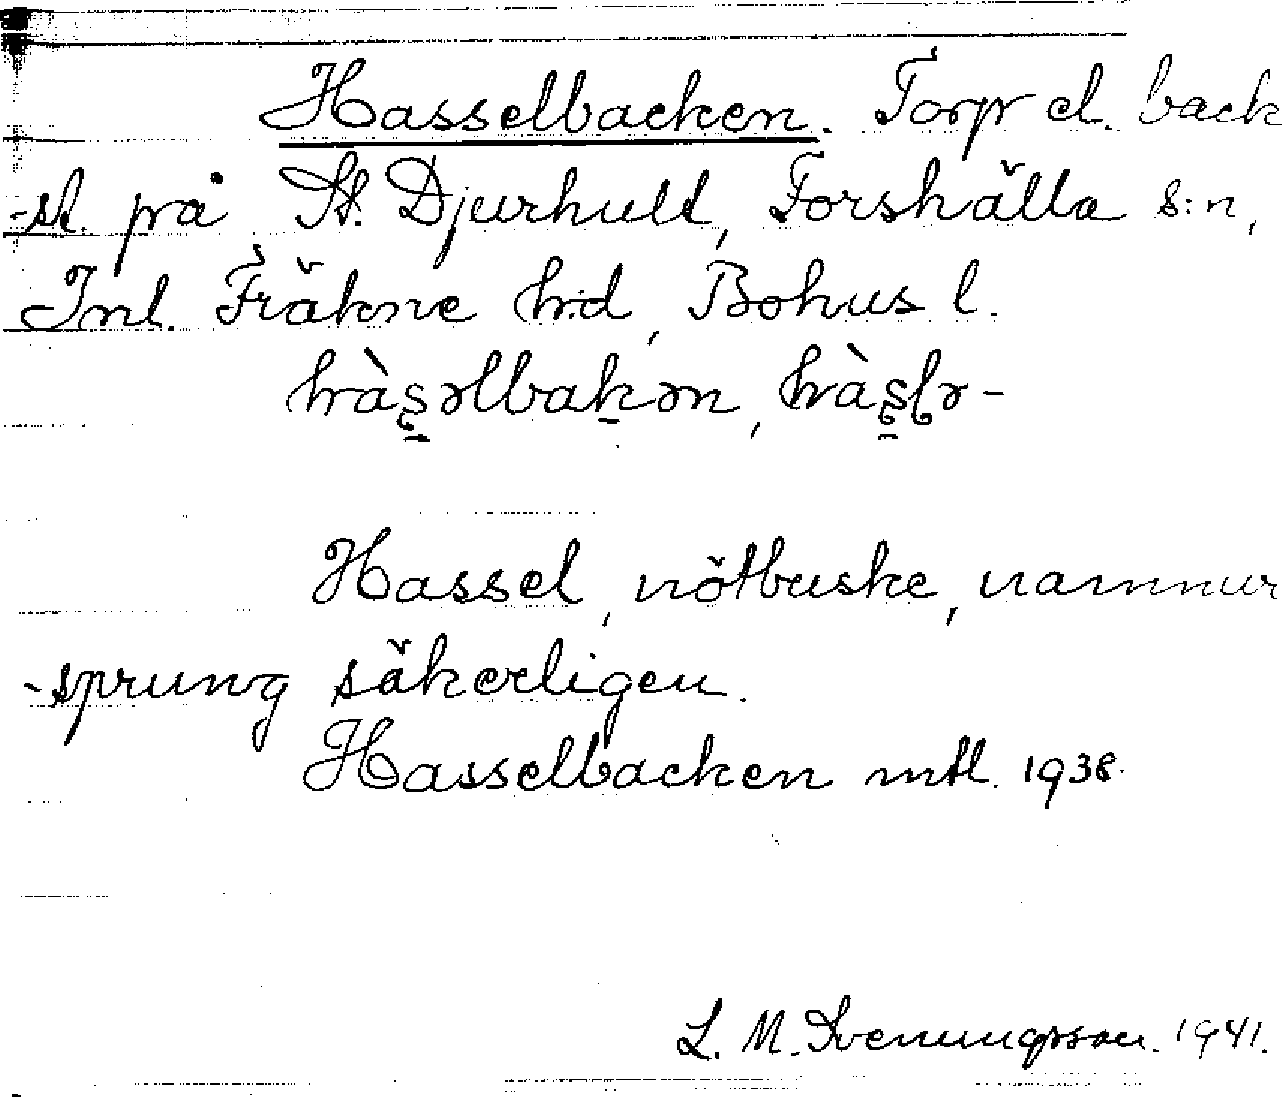 Hasselbacken. Torp el. back
-st. på St. Djurhult, Forshälla s:n,
Inl. Fräkne h:d, Bohus l.
hàs̱əlbaḵən, hàs̱ḷə-
Hassel, nötbuske, namnur
-sprung säkerligen.
Hasselbacken mtl. 1938.
L. M. Svenungsson. 1941.